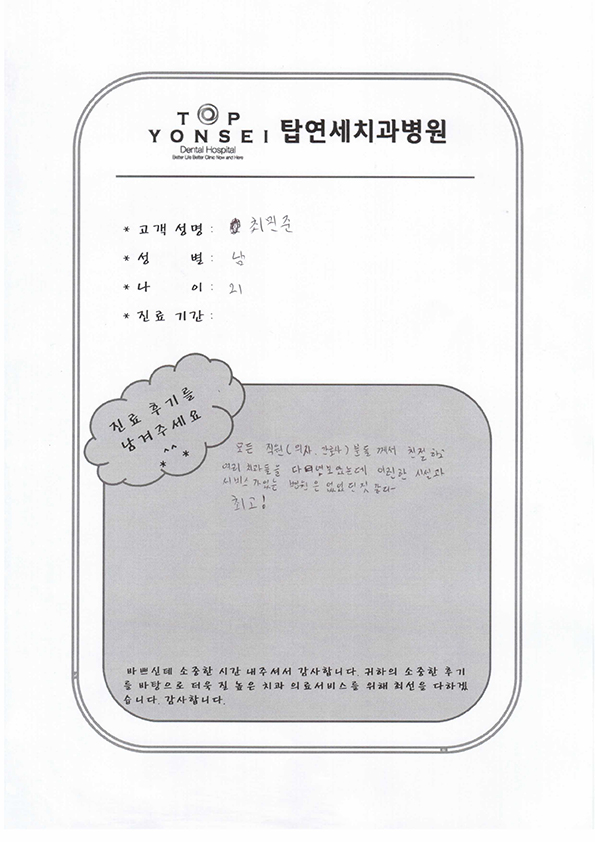 TOP
YONSEI 탑연세치과병원
Dental Hospital
Better Life Better Clinic Now and Here
* 고객 성명 : 최민준
* 성 별 : 남
* 나 이 : 21
* 진료 기간 :
진료 후기를
남겨주세요
^^
* *
모든 직원(의사, 간호사)분들 께서 친절하고
여러 치과들을 다녀보았는데 이런한 시설과
서비스가있는 병원은 없었던것 같다~
최고!
바쁘실텐데 소중한 시간 내주셔서 감사합니다. 귀하의 소중한 후기
를 바탕으로 더욱 질 높은 치과 의료서비스를 위해 최선을 다하겠
습니다. 감사합니다.